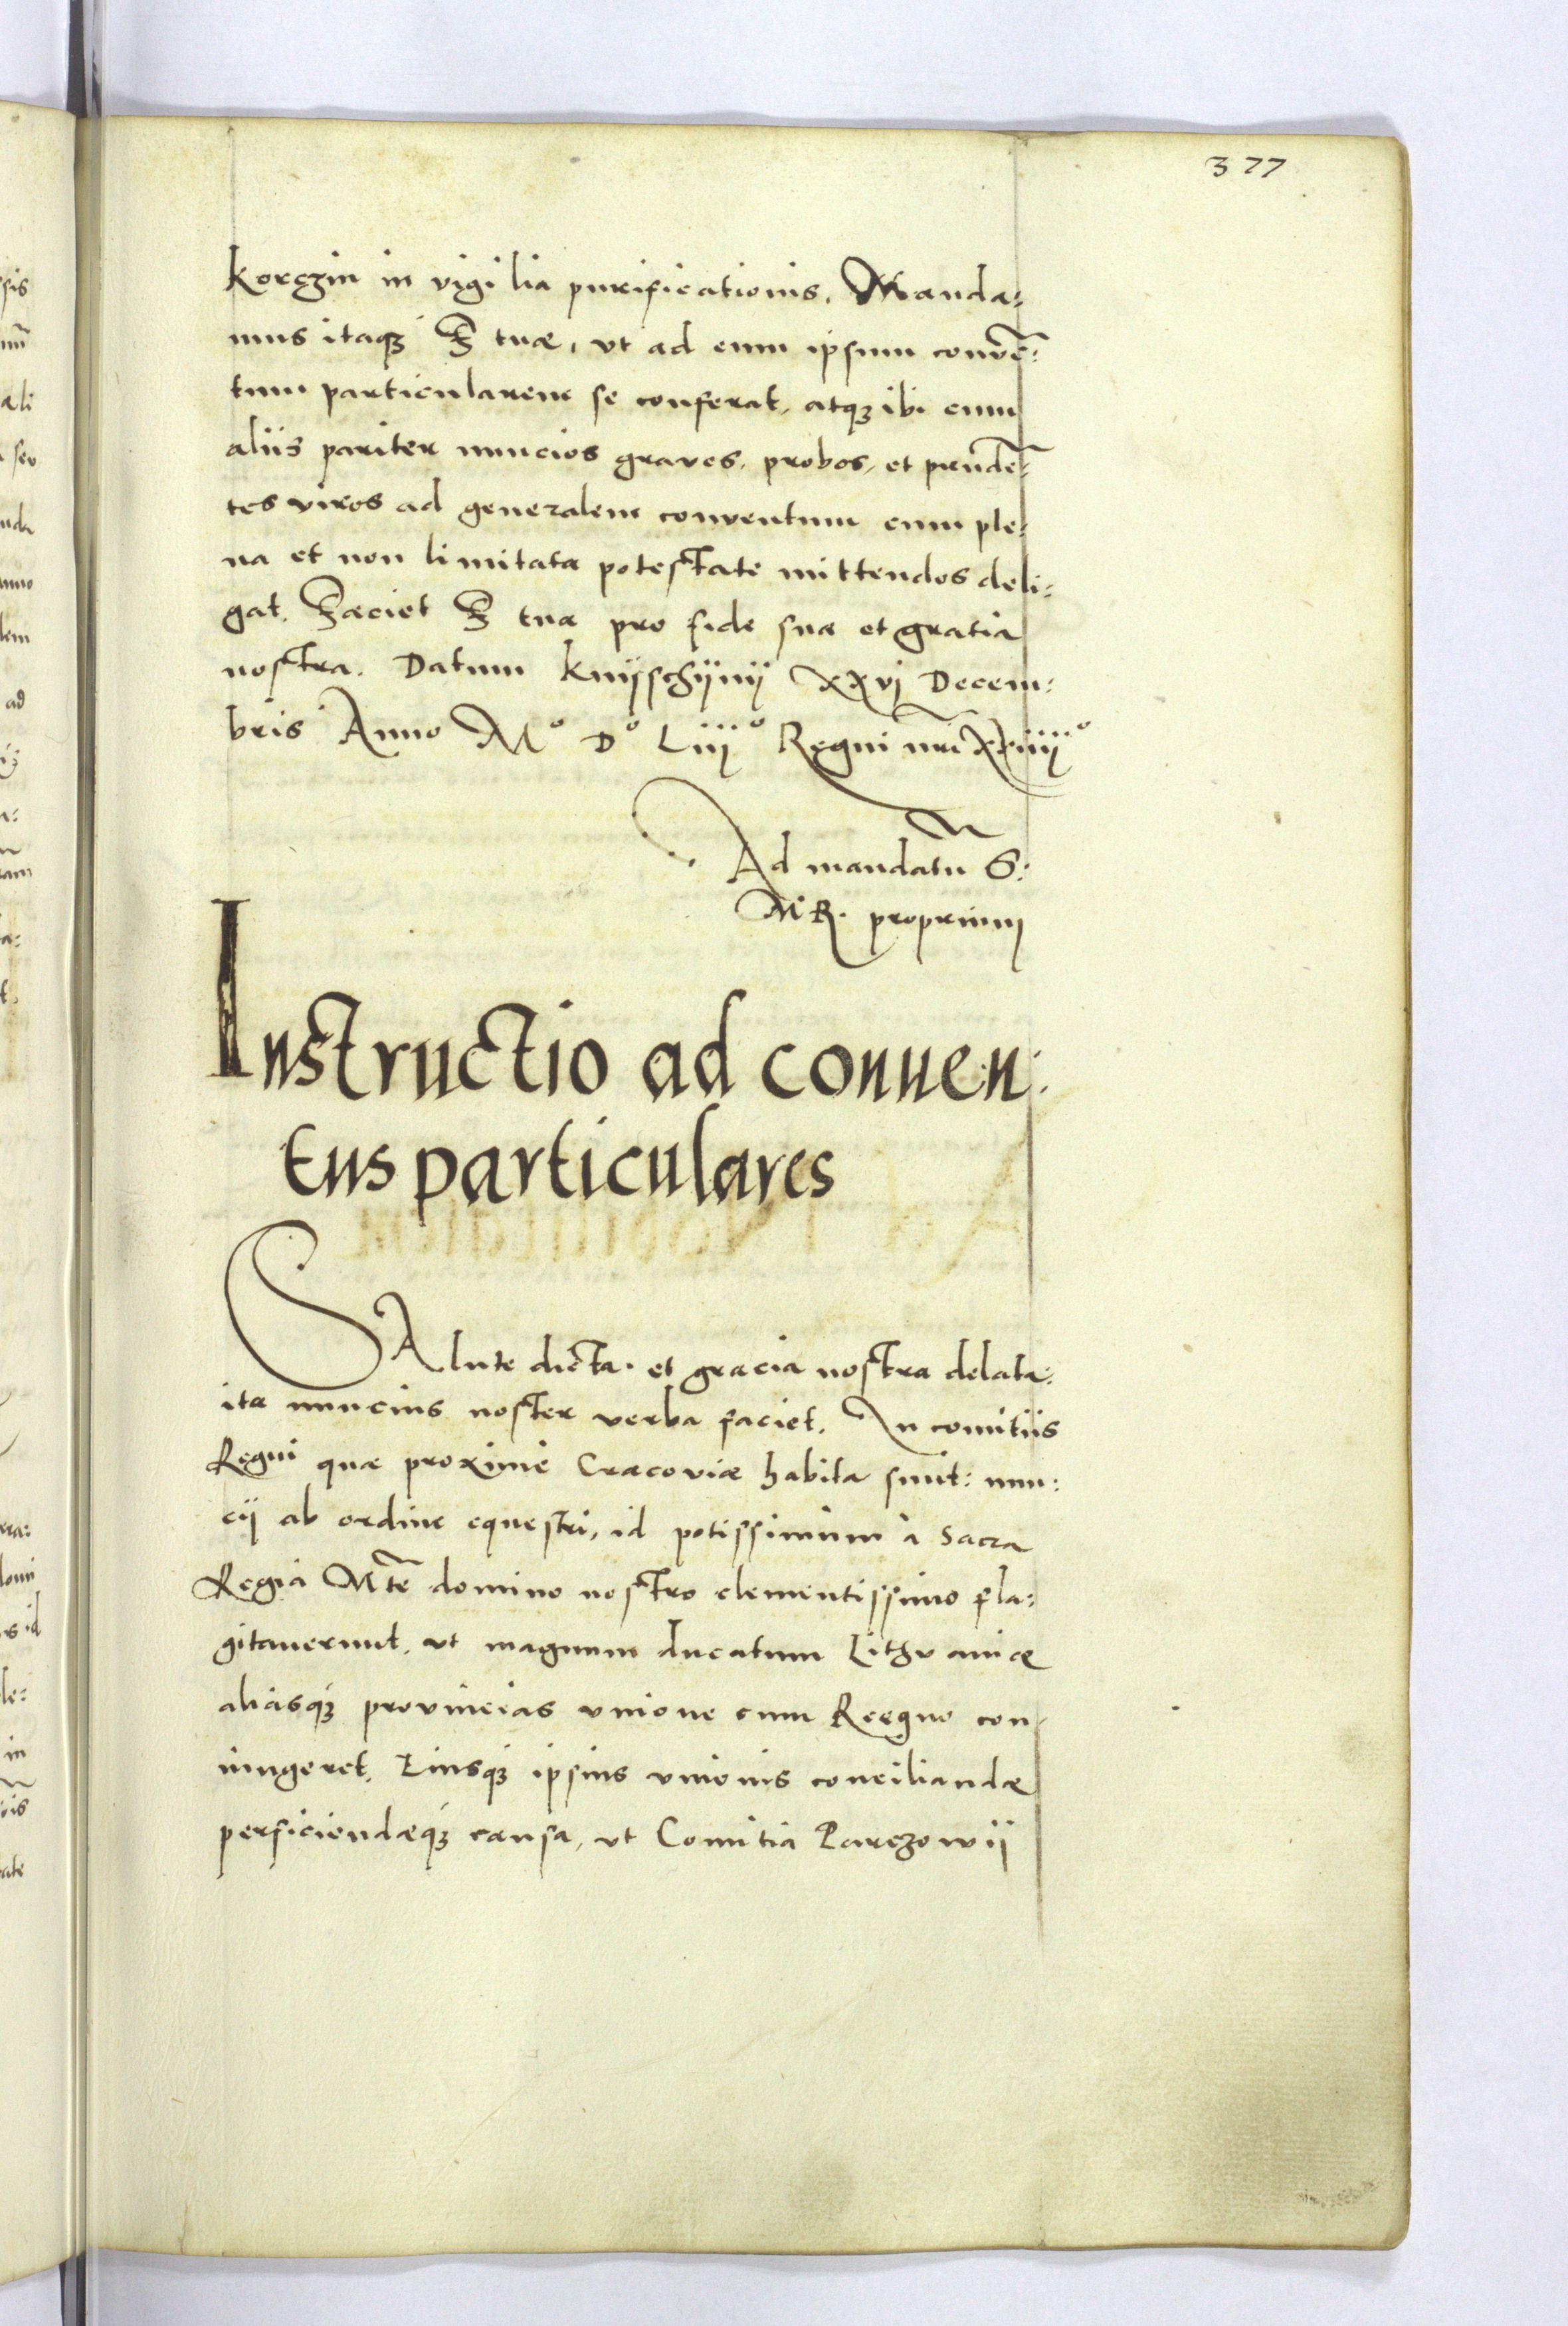 377
Korczin in vigilia purificationis, Manda:
mus itaqꝫ F̃ tuæ, vt ad eum ipsum convẽ:
tum particularem se conferat, atqꝫ ibi cum
aliis pariter nuncios graves, probos, et prudẽ:
tes viros ad generalem conventum cum ple:
na et non limitata potestate mittendos deli:
gat. Faciet F̃ tua pro fide sua et gratia
nostra. Datum Knijschijnij XXvj Decem:
bris Anno Mº Dº Liijº Regni nr̃i XXiiijº
Ad mandatũ S:
M R. proprium
Instructio ad conuen:
tus particulares
SAlute dicta. et gracia nostra delata.
ita nuncius noster verba faciet. In comitiis
Regni quæ proxime Cracoviæ habita sunt: nun:
cij ab ordine equestri, id potissimum à Sacra
Regia Mtẽ domino nostro clementissimo fla:
gitauerunt, ut magnum ducatum Lithvaniæ
aliasqꝫ provincias vnione cum Reegno con-
iungeret, Eiusqꝫ ipsius vnionis conciliandæ
perficiendæqꝫ causa, vt Comitia Parczowij